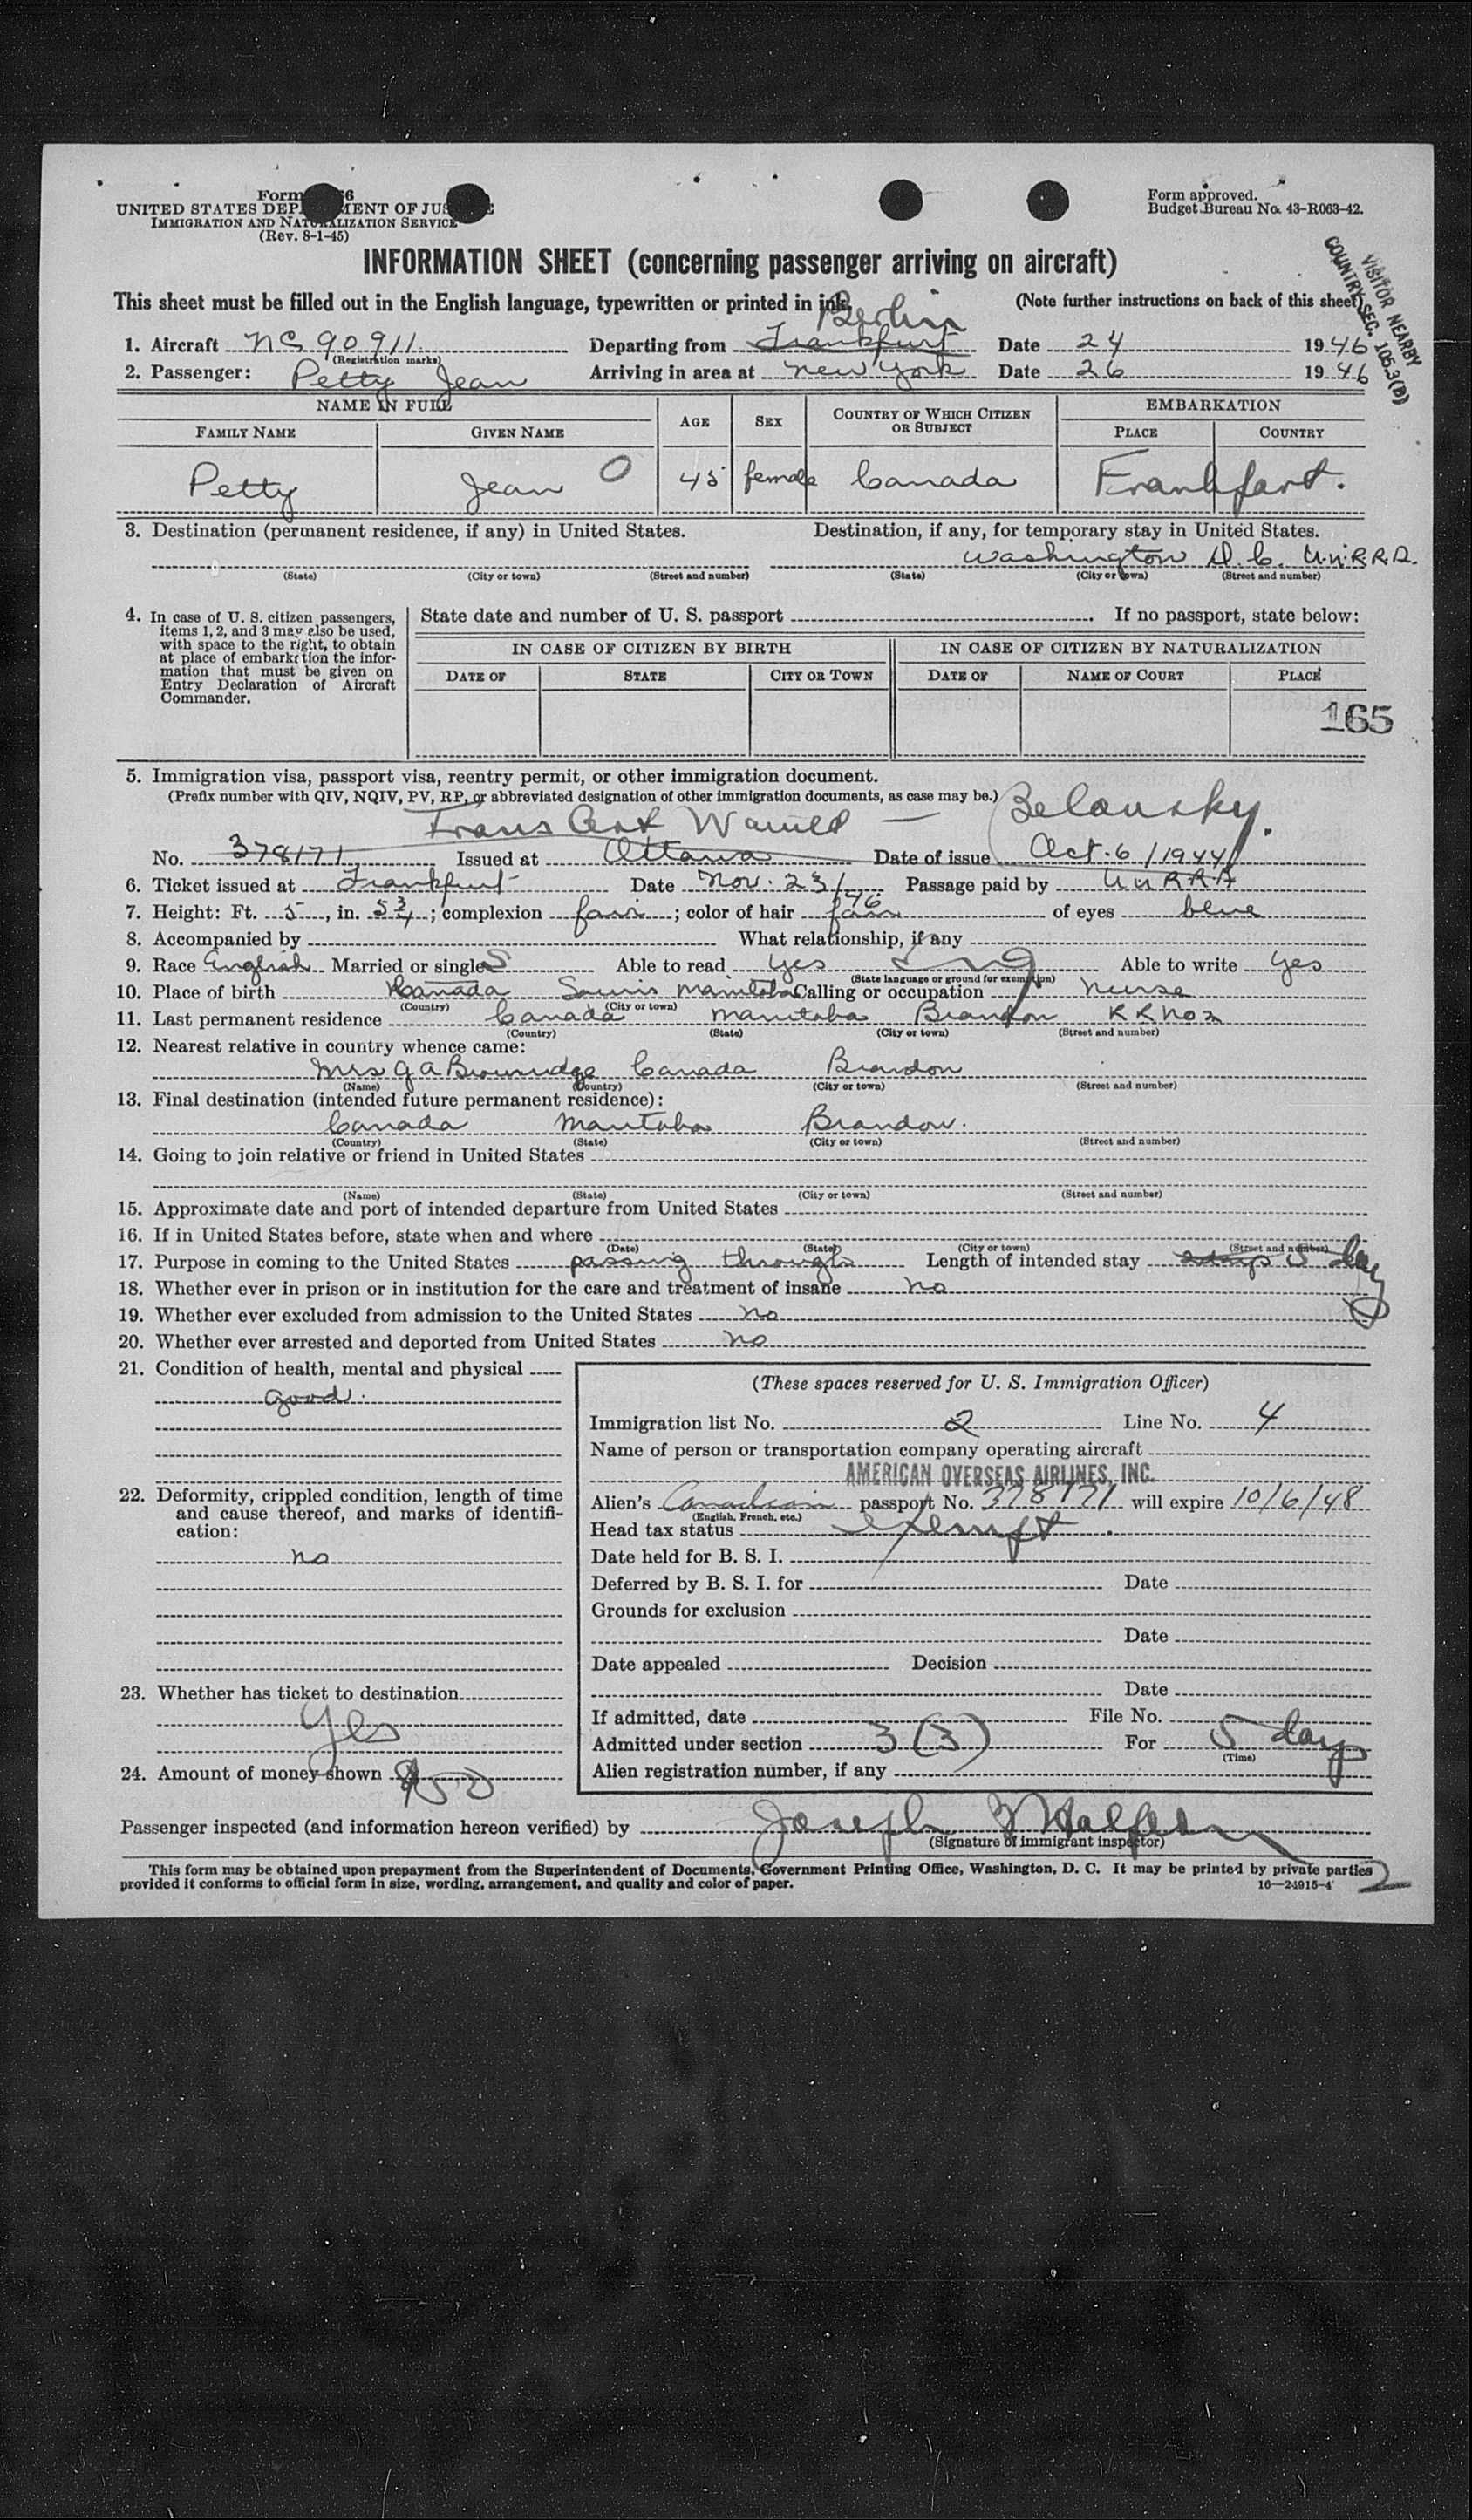 Form 66
UNITED STATES DEPARTMENT OF JUSTICE
IMMIGRATION AND NATURALIZATION SERVICE
(Rev. 8-1-45)
Form approved.
Budget Bureau No. 43-R063-42.
INFORMATION SHEET (concerning passenger arriving on aircraft)
VISITOR NEARBY
COUNTRY SEC. 105.3(B)
This sheet must be filled out in the English language, typewritten or printed in ink. (Note further instructions on back of this sheet)
Berlin
1. Aircraft NC 90911 Departing from Frankfurt Date 24 1946
(Registration marks)
2. Passenger: Petty Jean Arriving in area at New York Date 26 1946
NAME IN FULL AGE SEX COUNTRY OF WHICH CITIZEN OR SUBJECT EMBARKATION
FAMILY NAME GIVEN NAME PLACE COUNTRY
Petty Jean O 45 female Canada Frankfart.
3. Destination (permanent residence, if any) in United States. Destination, if any, for temporary stay in United States.
Washington D.C. U.N.R.R.A.
(State) (City or town) (Street and number) (State) (City or town) (Street and number)
4. In case of U. S. citizen passengers, items 1, 2, and 3 may also be used, with space to the right, to obtain at place of embarkation the information that must be given on Entry Declaration of Aircraft Commander.
State date and number of U. S. passport If no passport, state below:
IN CASE OF CITIZEN BY BIRTH IN CASE OF CITIZEN BY NATURALIZATION
DATE OF STATE CITY OR TOWN DATE OF NAME OF COURT PLACE
165
5. Immigration visa, passport visa, reentry permit, or other immigration document.
(Prefix number with QIV, NQIV, PV, RP, or abbreviated designation of other immigration documents, as case may be.)
Trans Cert Waived — Belansky.
No. 378171 Issued at Ottawa Date of issue Oct. 6/1944
6. Ticket issued at Frankfurt Date Nov. 23/46 Passage paid by UNRRA
7. Height: Ft. 5, in. 5 3/4; complexion fair; color of hair fair of eyes blue
8. Accompanied by What relationship, if any
9. Race English Married or single S Able to read yes Eng Able to write yes
(State language or ground for exemption)
10. Place of birth Canada Souris Manitoba Calling or occupation nurse
(Country) (City or town)
11. Last permanent residence Canada Manitoba Brandon RR No 2
(Country) (State) (City or town) (Street and number)
12. Nearest relative in country whence came:
Mrs G A Brownridge Canada Brandon
(Name) (Country) (City or town) (Street and number)
13. Final destination (intended future permanent residence):
Canada Manitoba Brandon.
(Country) (State) (City or town) (Street and number)
14. Going to join relative or friend in United States
(Name) (State) (City or town) (Street and number)
15. Approximate date and port of intended departure from United States
16. If in United States before, state when and where
(Date) (State) (City or town) (Street and number)
17. Purpose in coming to the United States passing through Length of intended stay 2 days 5 days
18. Whether ever in prison or in institution for the care and treatment of insane no
19. Whether ever excluded from admission to the United States no
20. Whether ever arrested and deported from United States no
21. Condition of health, mental and physical
good.
22. Deformity, crippled condition, length of time and cause thereof, and marks of identification:
no
23. Whether has ticket to destination
Yes
24. Amount of money shown $50
(These spaces reserved for U. S. Immigration Officer)
Immigration list No. 2 Line No. 4
Name of person or transportation company operating aircraft
AMERICAN OVERSEAS AIRLINES, INC.
Alien's Canadian passport No. 378171 will expire 10/6/48
(English, French, etc.)
Head tax status exempt
Date held for B. S. I.
Deferred by B. S. I. for Date
Grounds for exclusion
Date
Date appealed Decision
Date
If admitted, date File No.
Admitted under section 3(3) For 5 days
(Time)
Alien registration number, if any
Passenger inspected (and information hereon verified) by Joseph
(Signature of immigrant inspector)
This form may be obtained upon prepayment from the Superintendent of Documents, Government Printing Office, Washington, D. C. It may be printed by private parties
provided it conforms to official form in size, wording, arrangement, and quality and color of paper. 16—24915-4 2